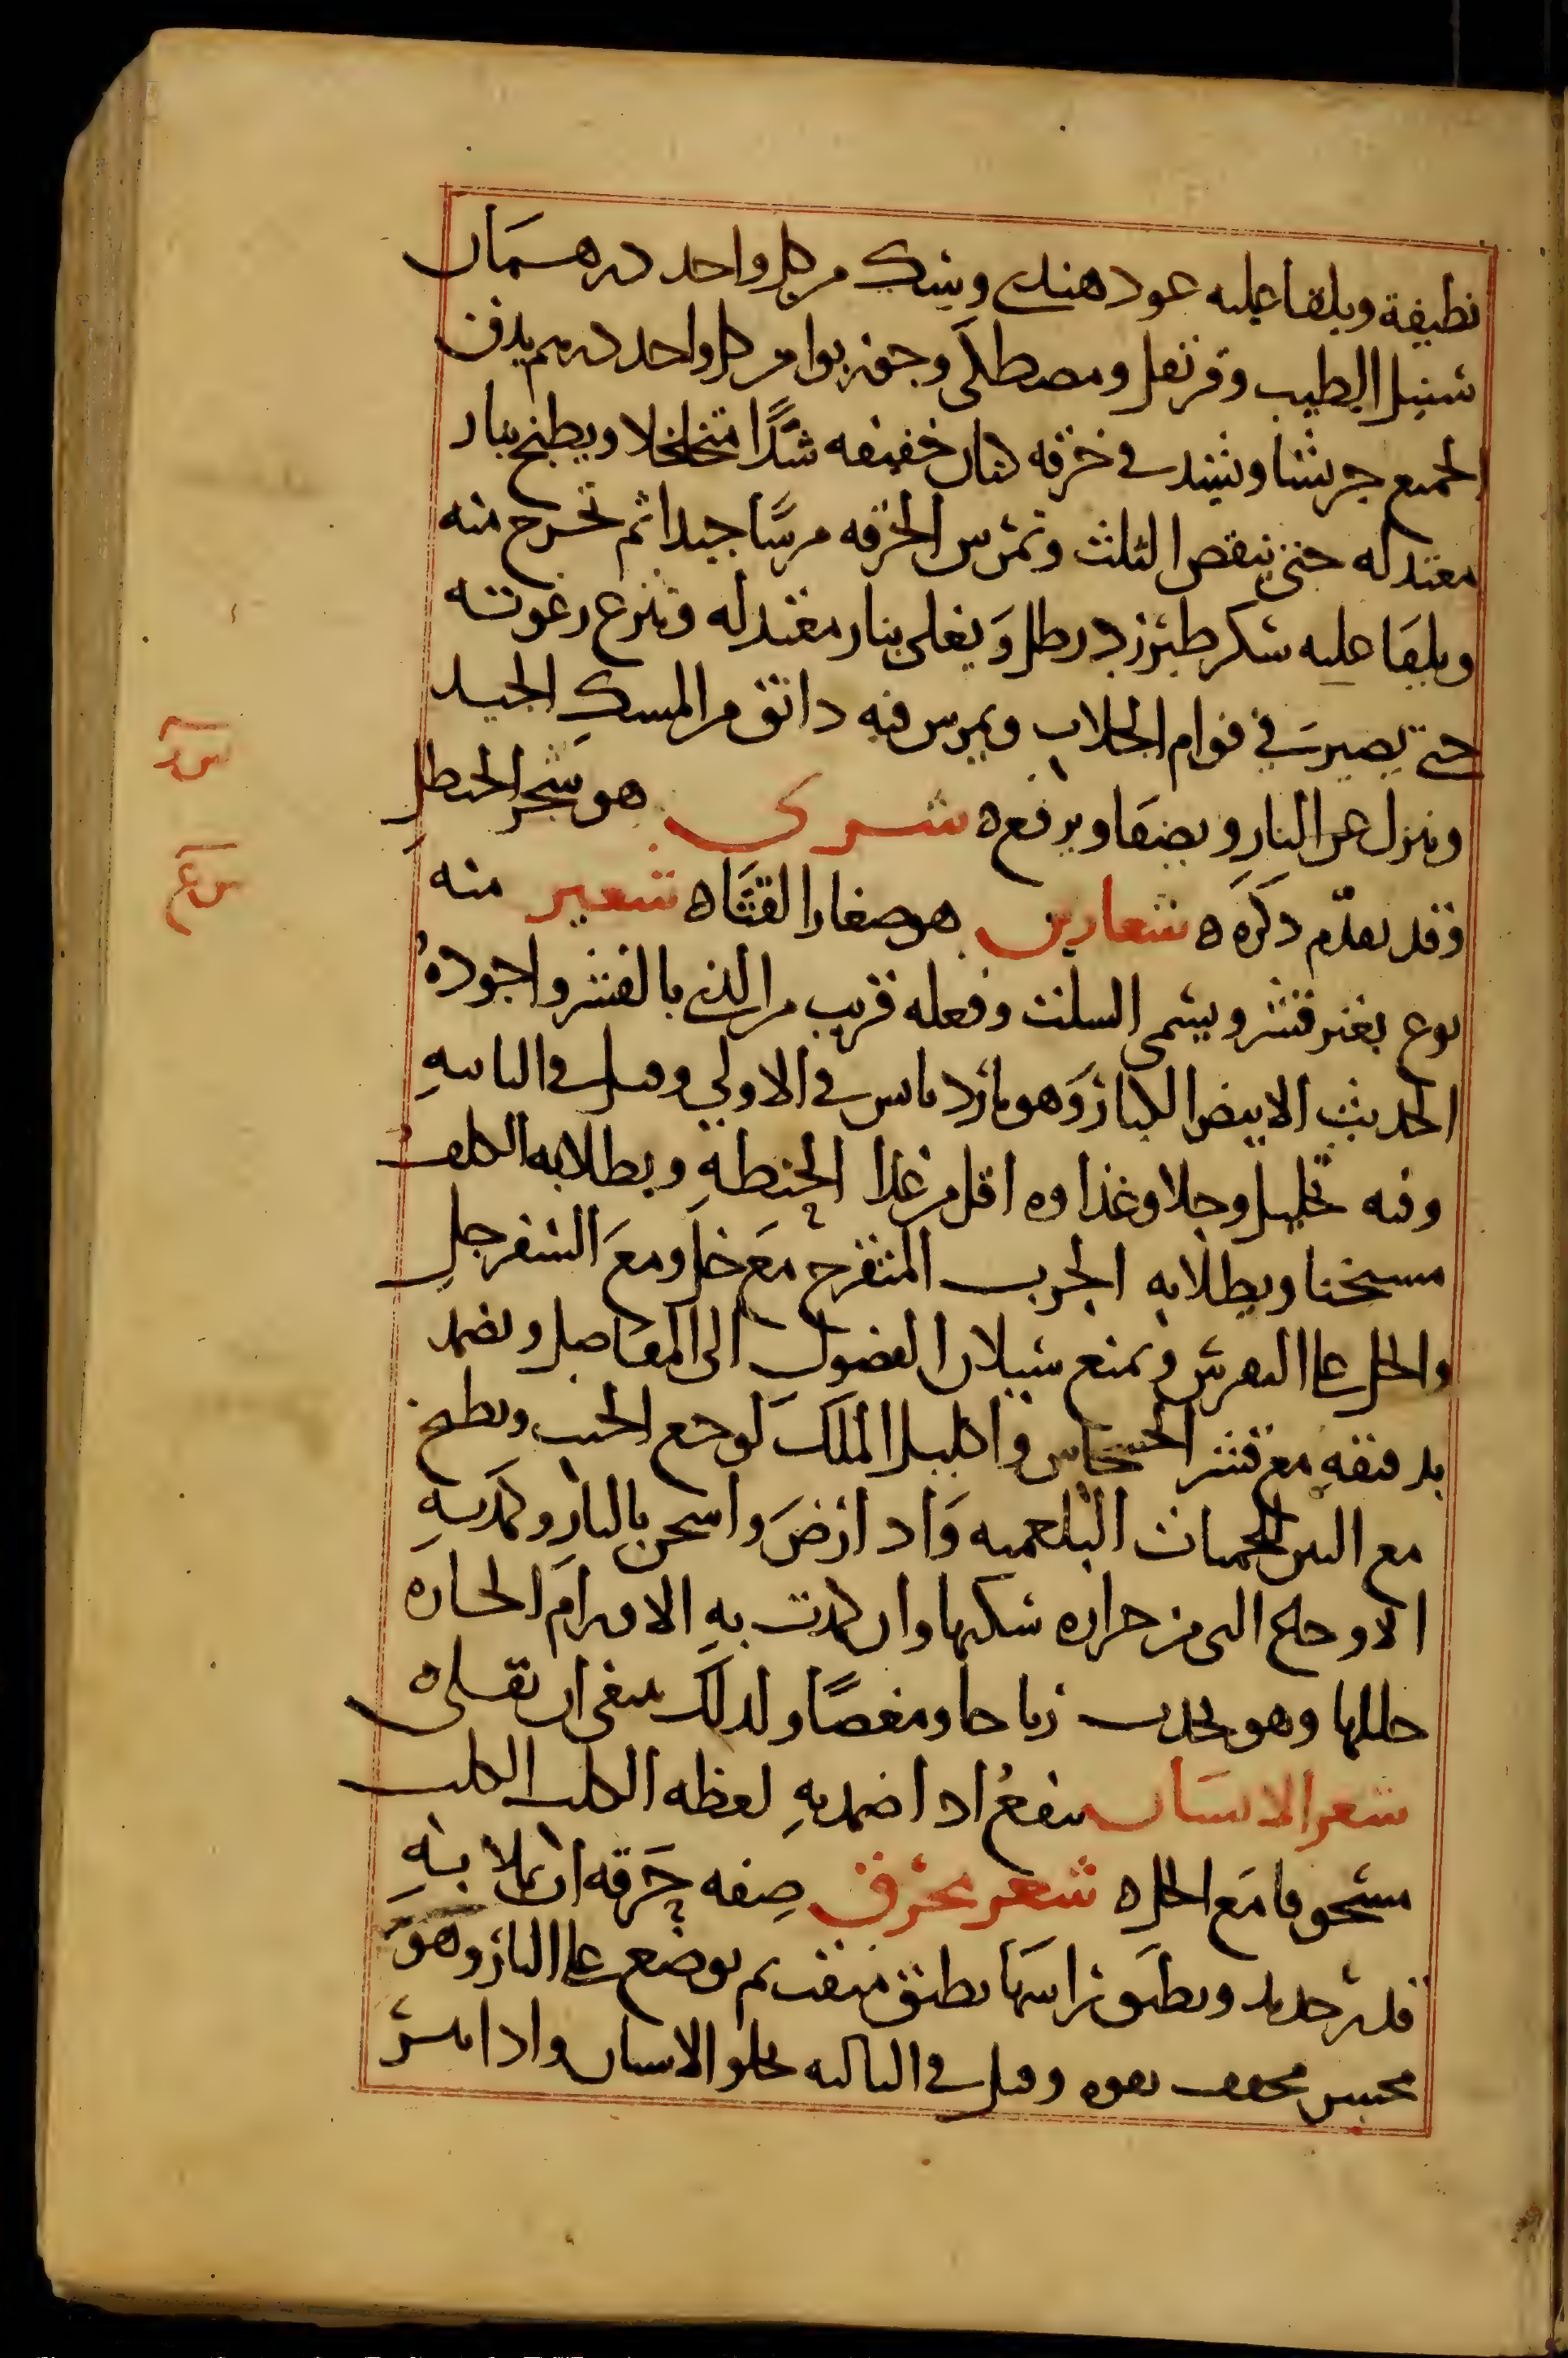 نظيفة ويلقا عليه عود هندي وبنك من كل واحد درهمان
سنبل الطيب وقرنفل ومصطكى وجوزبوا من كل واحد درهم يدق
الجميع جريشا ويشد في خرقه كتان خفيفه شدًا متخلخلا ويطبخ بنار
معتدله حتى ينقص الثلث وتمرس الخرقه مرسًا جيدا ثم تخرج منه
ويلقا عليه سكر طبرزد رطل ويغلى بنار معتدله وتنزع رغوته
حتى يصير في قوام الجلاب ويمرس فيه دانق من المسك الجيد
وينزل عن النار ويصفا ويرفع ه شرى هو شجر الحنظل
وقد تقدّم ذكره ه شعارير هو صغار القثاه شعير منه
نوع بغير قشر ويسمى السلت وفعله قريب من الذي بالقشر واجوده
الحديث الابيض الكبار وهو بارد يابس في الاولى وقيل في الثانيه
وفيه تحليل وجلا وغذاوه اقل من غذا الحنطة ويطلا به الكلف
مسخنا ويطلا به الجرب المتقرح مع خل ومع السفرجل
والخل على النقرس ويمنع سيلان الفضول الى المفاصل ويضمد
بدقيقه مع قشر الخشخاش واكليل الملك لوجع الجنب ويطبخ
مع التين للحميات البلغميه واذا رض واسخن بالنار وكمد به
الاوجاع التي من حراره سكنها وان كمدت به الاورام الحاره
حللها وهو يحدث رياحا ومغصًا ولذلك ينبغي ان يقلى ه
شعر الانسان ينفع اذا ضمد به لعظه الكلب الكلب
مسحوقا مع الخل ه شعر محرق صفه حرقه ان يملا به
قدر حديد ويطبق راسها بطبق مثقب ثم يوضع على النار وهو
مجفف بقوه وقيل في الثالثه يجلو الاسنان واذا
سر
سع